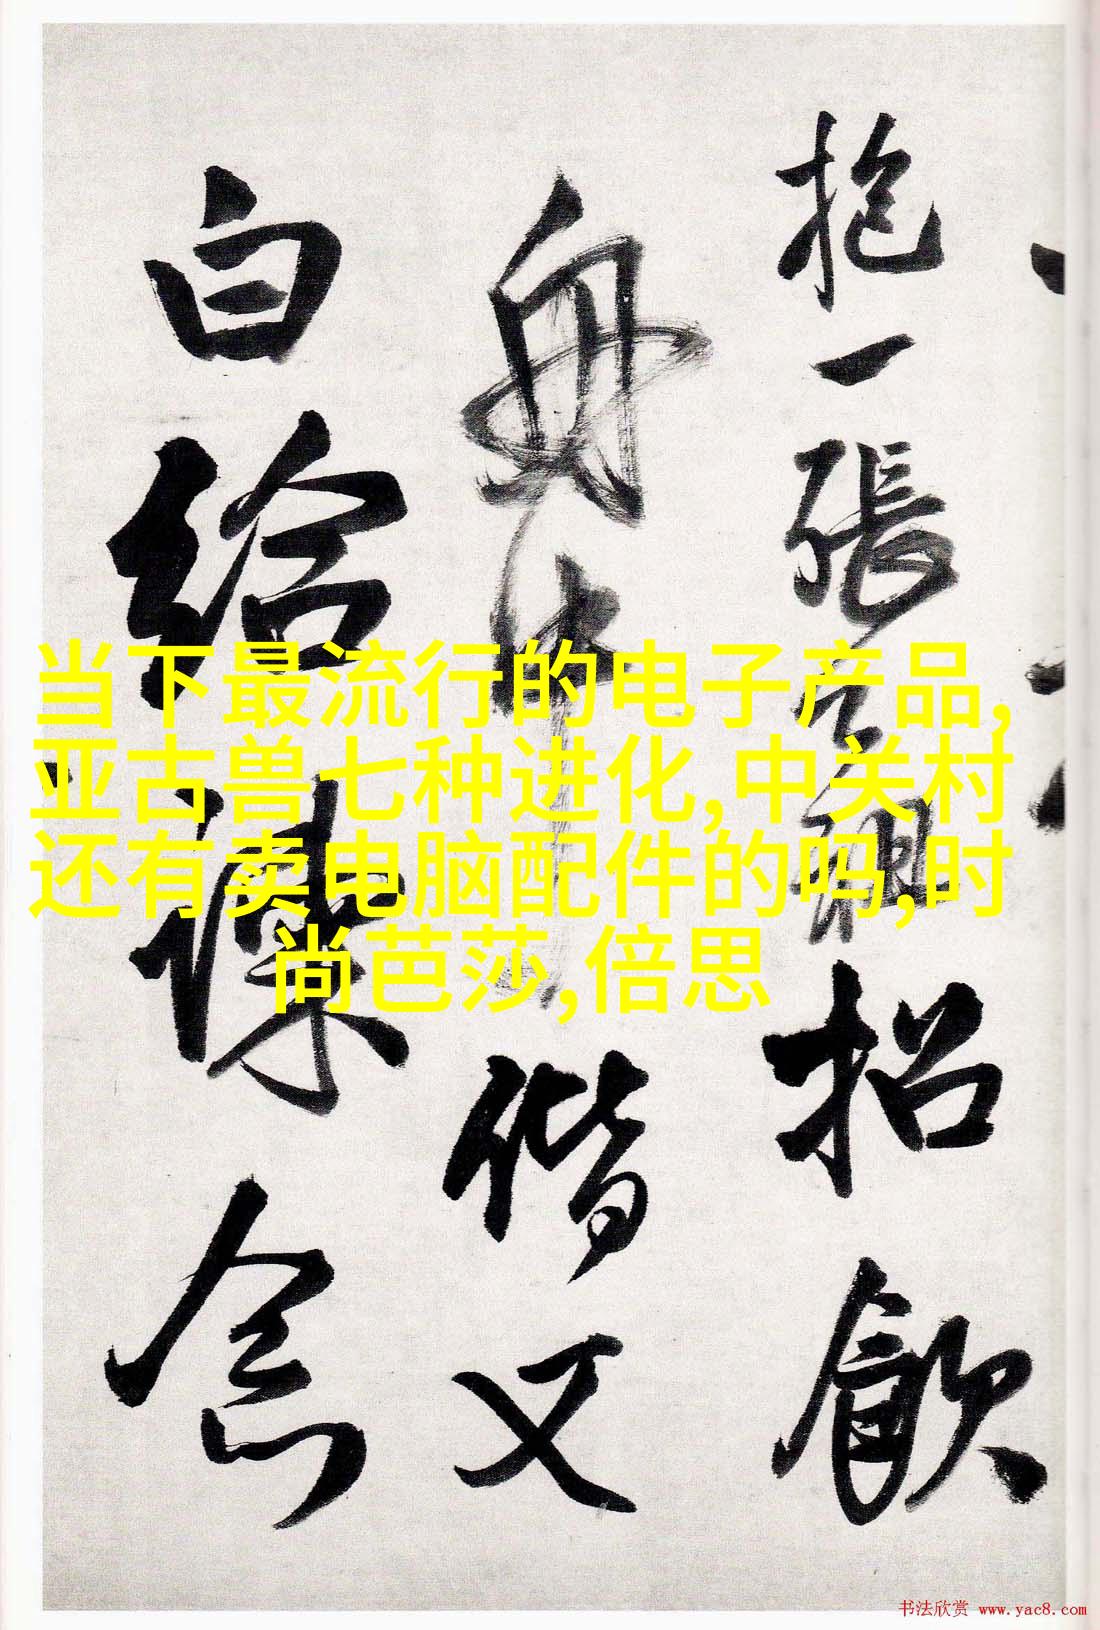 抱一張子祖招飲
舟中偕又
白給諫僉
当下最流行的电子产品,
亚古兽七种进化,中关村
还有卖电脑配件的吗,时
尚芭莎,倍思
书法欣赏 www.yac8.com